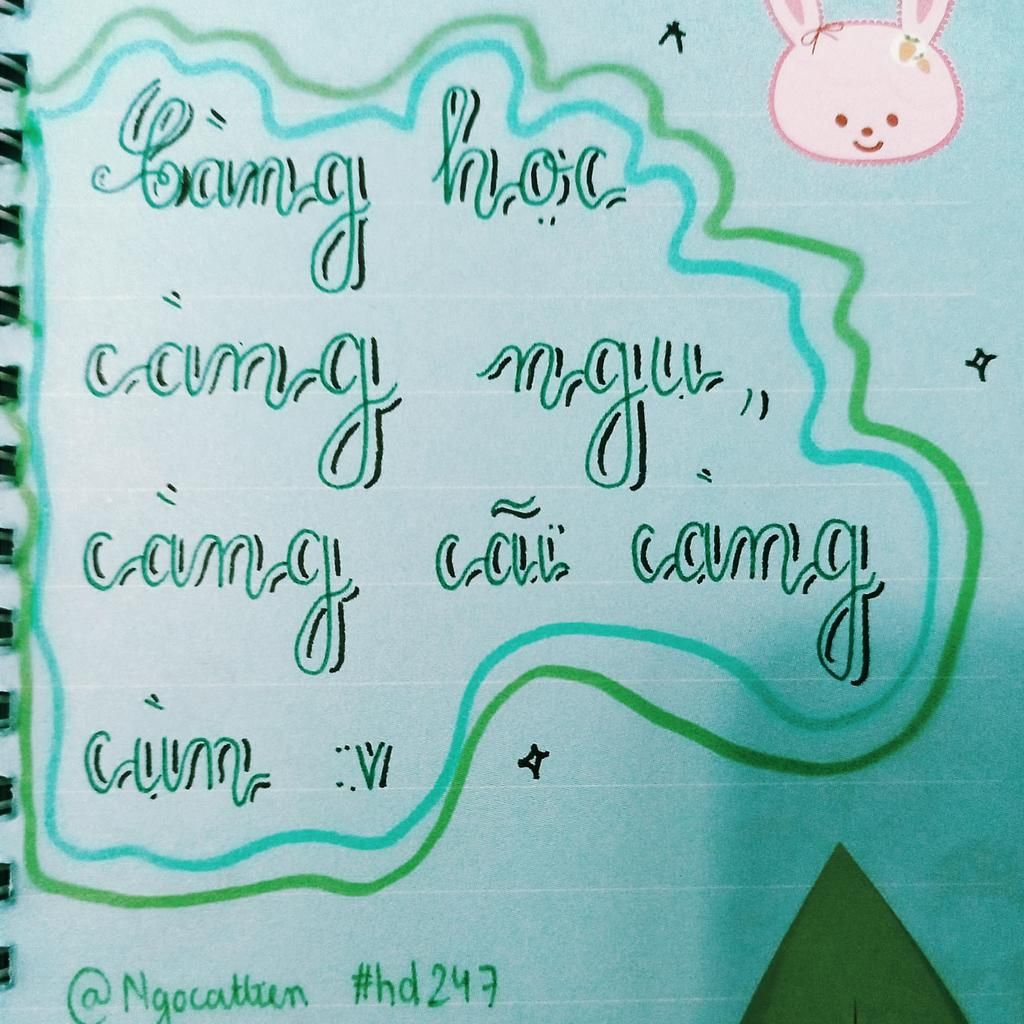 Càng học
càng ngu,
càng cãi càng
cùn :v
@Ngocattien #hd247